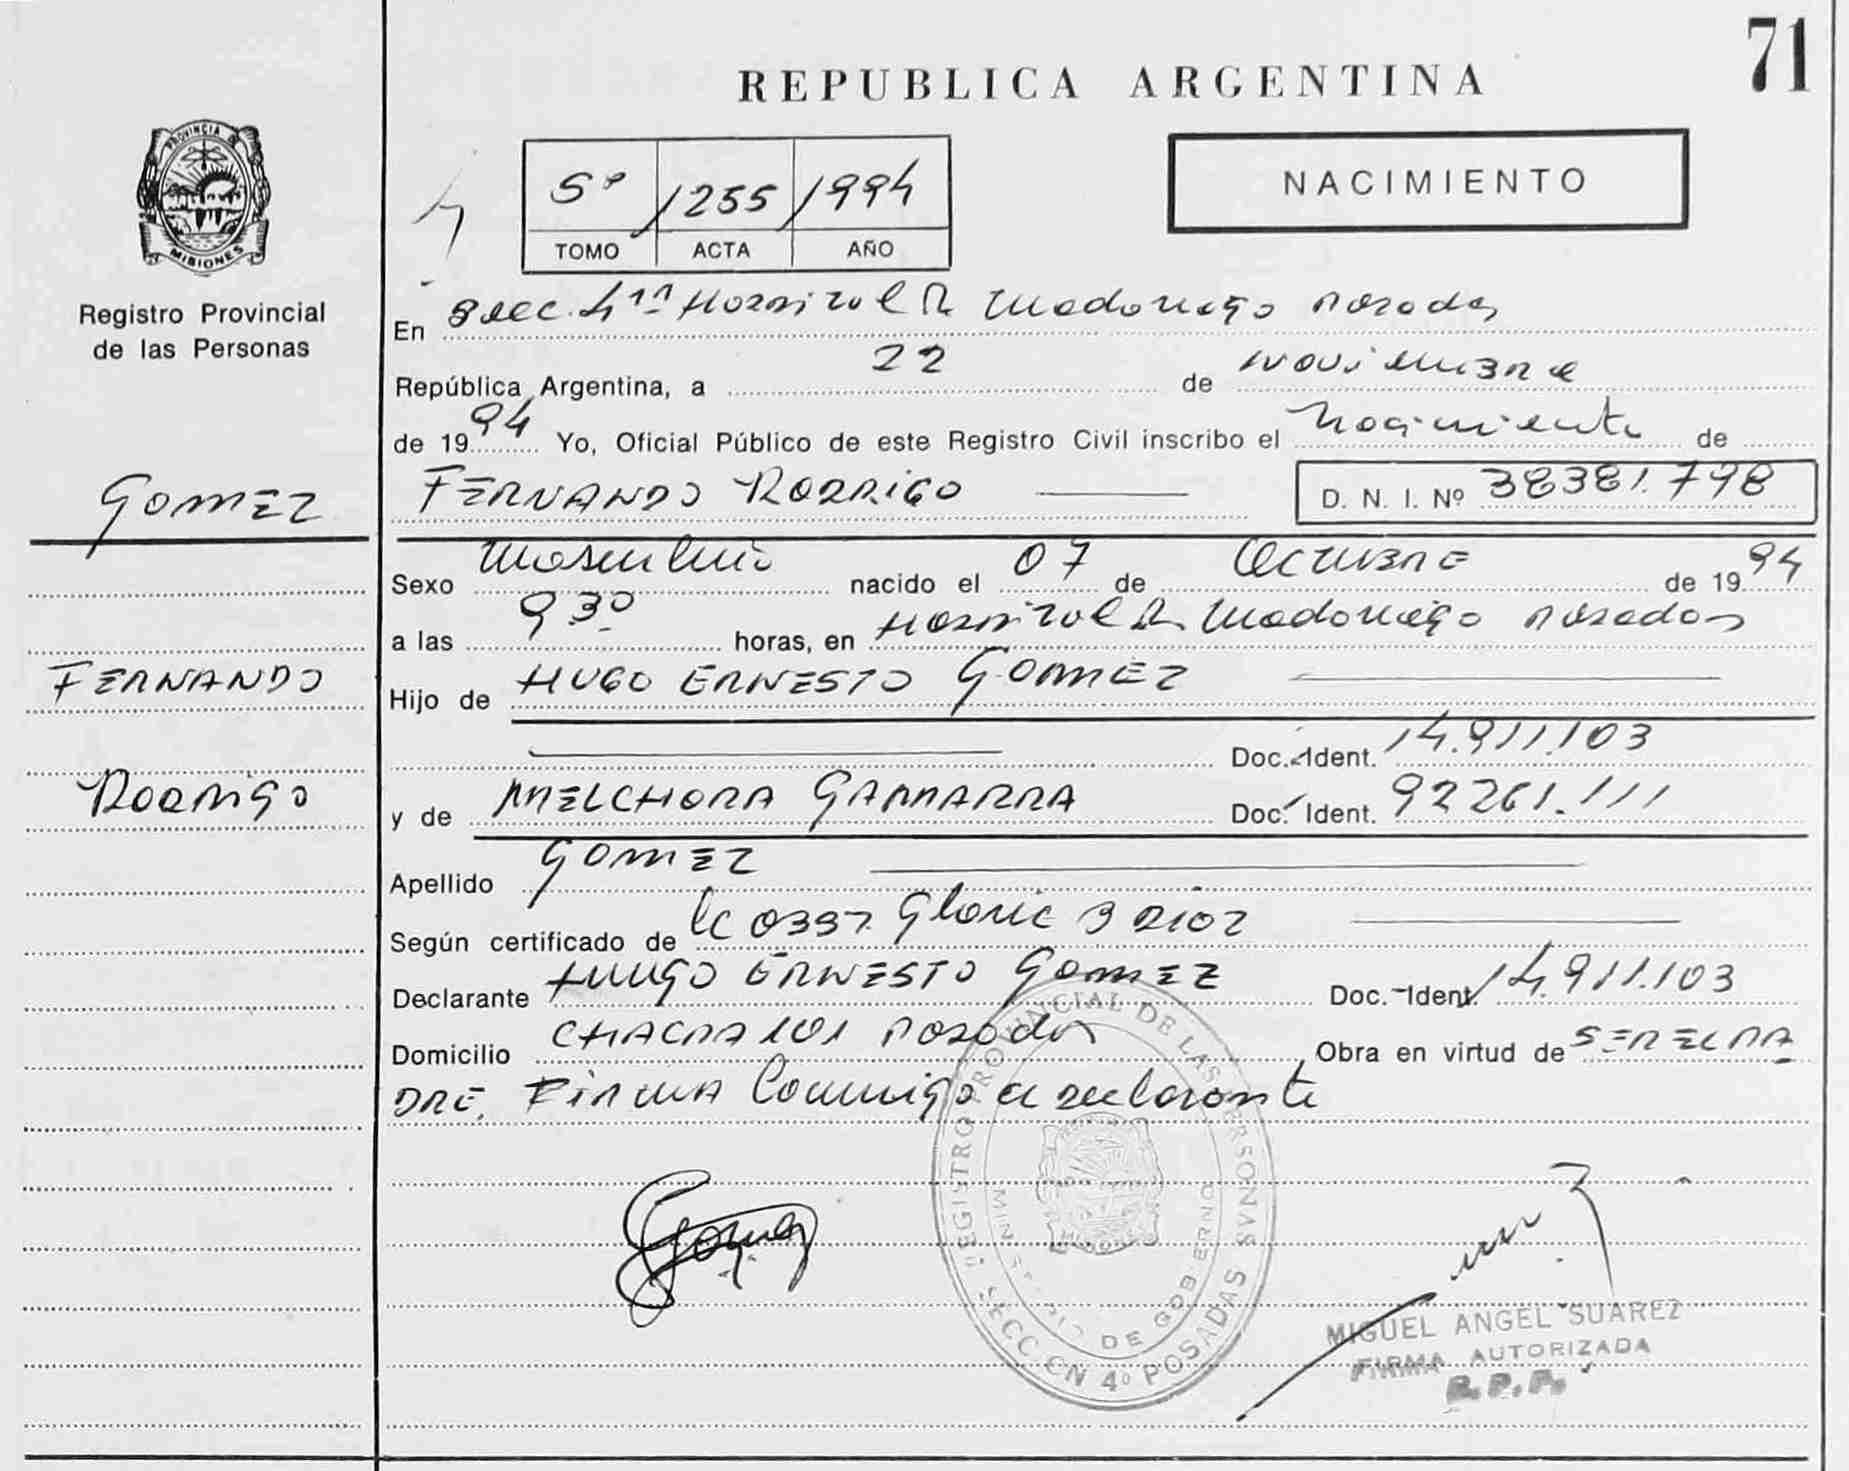 71
REPUBLICA ARGENTINA
PROVINCIA D
MISIONES
Registro Provincial
de las Personas
5º 1255 1994
TOMO ACTA AÑO
NACIMIENTO
En Secc. 4ta Hospital R Madariaga Posadas
República Argentina, a 22 de noviembre
de 1994 Yo, Oficial Público de este Registro Civil inscribo el Nacimiento de
GOMEZ
FERNANDO RODRIGO
D. N. I. Nº 38381.798
Sexo Masculino nacido el 07 de Octubre de 1994
a las 930 horas, en Hospital R. Madariaga Posadas
FERNANDO
Hijo de HUGO ERNESTO GOMEZ
Doc. Ident. 14.911.103
Rodrigo
y de MELCHORA GAMARRA Doc. Ident. 92261.111
Apellido GOMEZ
Según certificado de Gloria
Declarante Hugo ERNESTO GOMEZ Doc. Ident. 14.911.103
Domicilio CHACRA 101 Posadas Obra en virtud de SER EL PA
DRE. Firma Conmigo el declarante
Gomez
REGISTRO PROVINCIAL DE LAS PERSONAS
MINISTERIO DE GOBIERNO
SECCION 4º POSADAS
MIGUEL ANGEL SUAREZ
FIRMA AUTORIZADA
R.P.P.